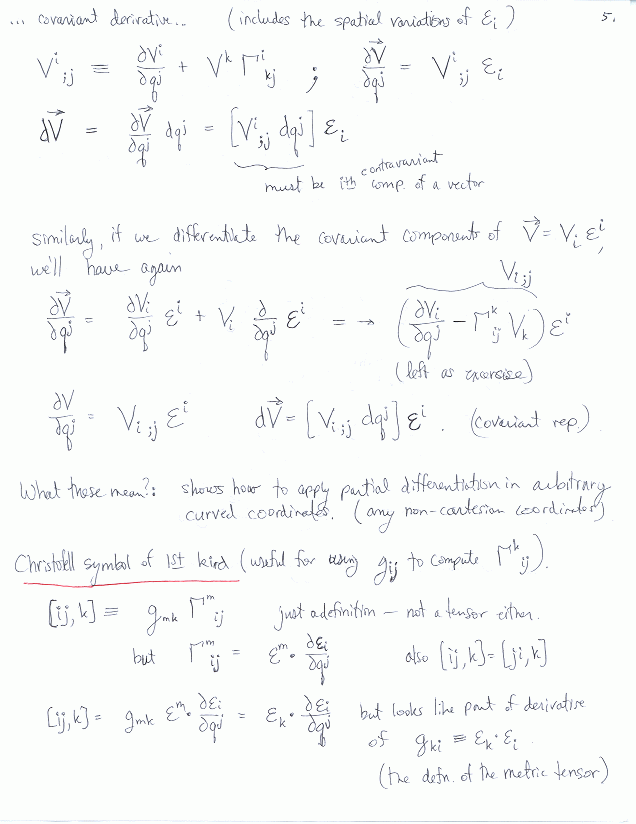 ... covariant derivative... (includes the spatial variations of εᵢ) 5.
Vⁱ;ⱼ ≡ ∂Vⁱ/∂qʲ + Vᵏ Γⁱₖⱼ ; ∂V⃗/∂qʲ = Vⁱ;ⱼ εᵢ
dV⃗ = ∂V⃗/∂qʲ dqʲ = [Vⁱ;ⱼ dqʲ] εᵢ
must be ith contravariant comp. of a vector
Similarly, if we differentiate the covariant components of V⃗ = Vᵢ εⁱ,
we'll have again
Vᵢ;ⱼ
∂V⃗/∂qʲ = ∂Vᵢ/∂qʲ εⁱ + Vᵢ ∂/∂qʲ εⁱ = → (∂Vᵢ/∂qʲ − Γᵏᵢⱼ Vₖ) εⁱ
(left as excersise)
∂V/∂qʲ = Vᵢ;ⱼ εⁱ dV⃗ = [Vᵢ;ⱼ dqʲ] εⁱ. (covariant rep.)
What these mean?: shows how to apply partial differentiation in arbitrary
curved coordinates. (any non-cartesian coordinates)
Christofell symbol of 1st kind (useful for using gᵢⱼ to compute Γᵏᵢⱼ).
[ij,k] ≡ gₘₖ Γᵐᵢⱼ just a definition – not a tensor either.
but Γᵐᵢⱼ = εᵐ · ∂εᵢ/∂qʲ also [ij,k] = [ji,k]
[ij,k] = gₘₖ εᵐ · ∂εᵢ/∂qʲ = εₖ · ∂εᵢ/∂qʲ but looks like part of derivative
of gₖᵢ ≡ εₖ · εᵢ
(the defn. of the metric tensor)